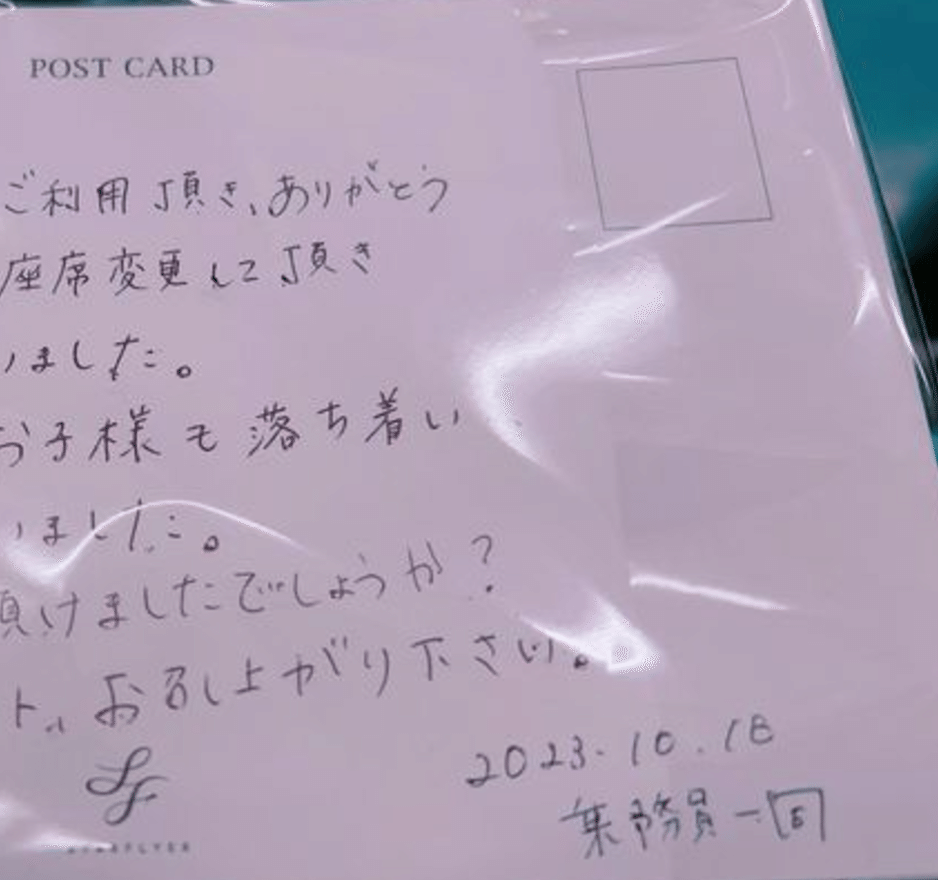 POST CARD
ご利用頂き、ありがとう
座席変更して頂き
いました。
お子様も落ち着い
いました。
頂けましたでしょうか?
ト、お召し上がり下さい。
2023.10.18
乗務員一同
STARFLYER